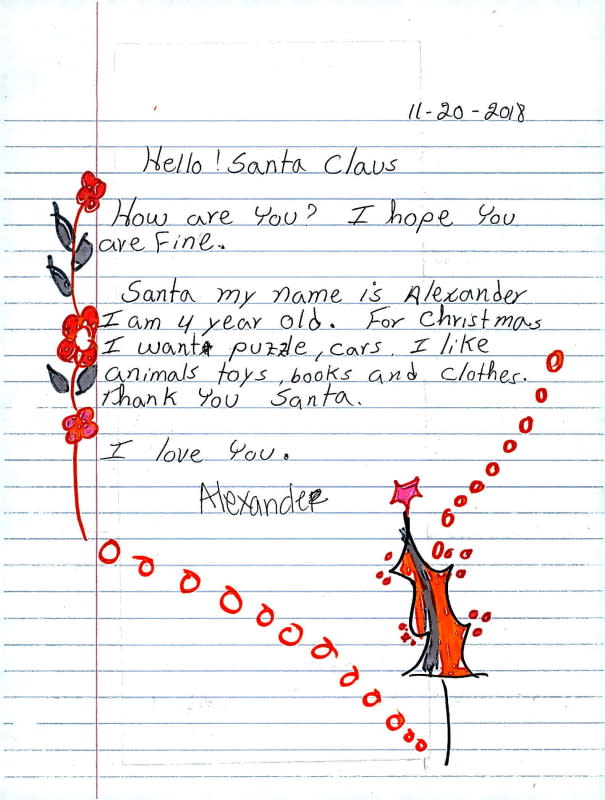 11-20-2018
Hello! Santa Claus
How are You? I hope You
are Fine.
Santa my name is Alexander
I am 4 year old. For Christmas
I want puzzle, cars. I like
animals toys, books and clothes.
Thank You Santa.
I love You.
Alexander